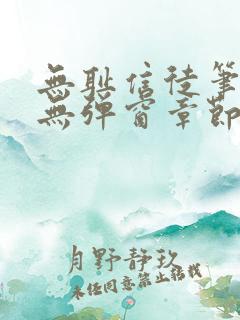 無耻信徒筆
無彈窗章節
月野靜玖
未经同意禁止转载